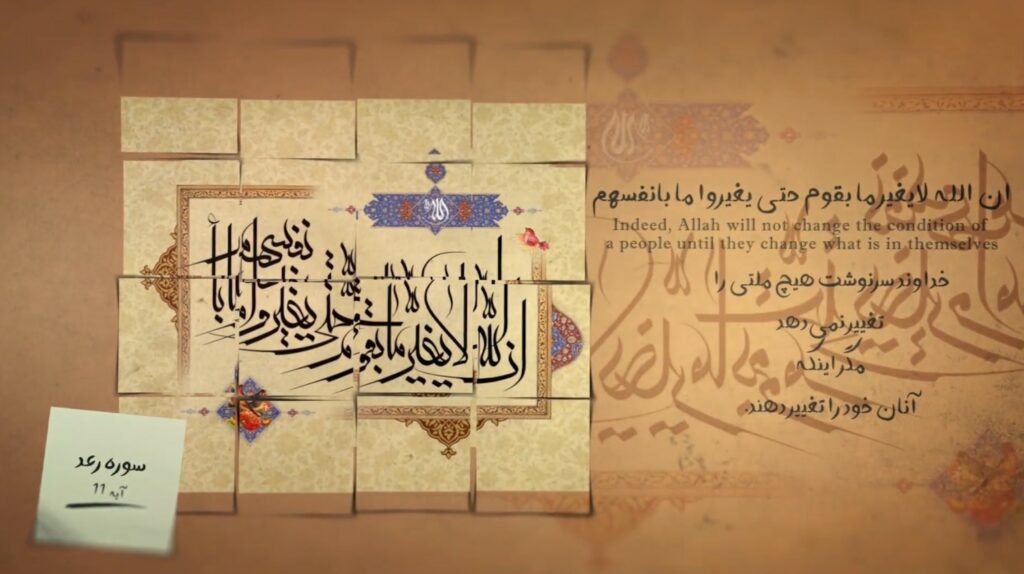 الله
ان الله لا یغیر ما بقوم حتی یغیروا ما بانفسهم
ان الله لا یغیر ما بقوم حتی یغیروا ما بانفسهم
Indeed, Allah will not change the condition of
a people until they change what is in themselves
خداوند سرنوشت هیچ ملتی را
تغییر نمی دهد
مگر اینکه
آنان خود را تغییر دهند.
سوره رعد
آیه ۱۱